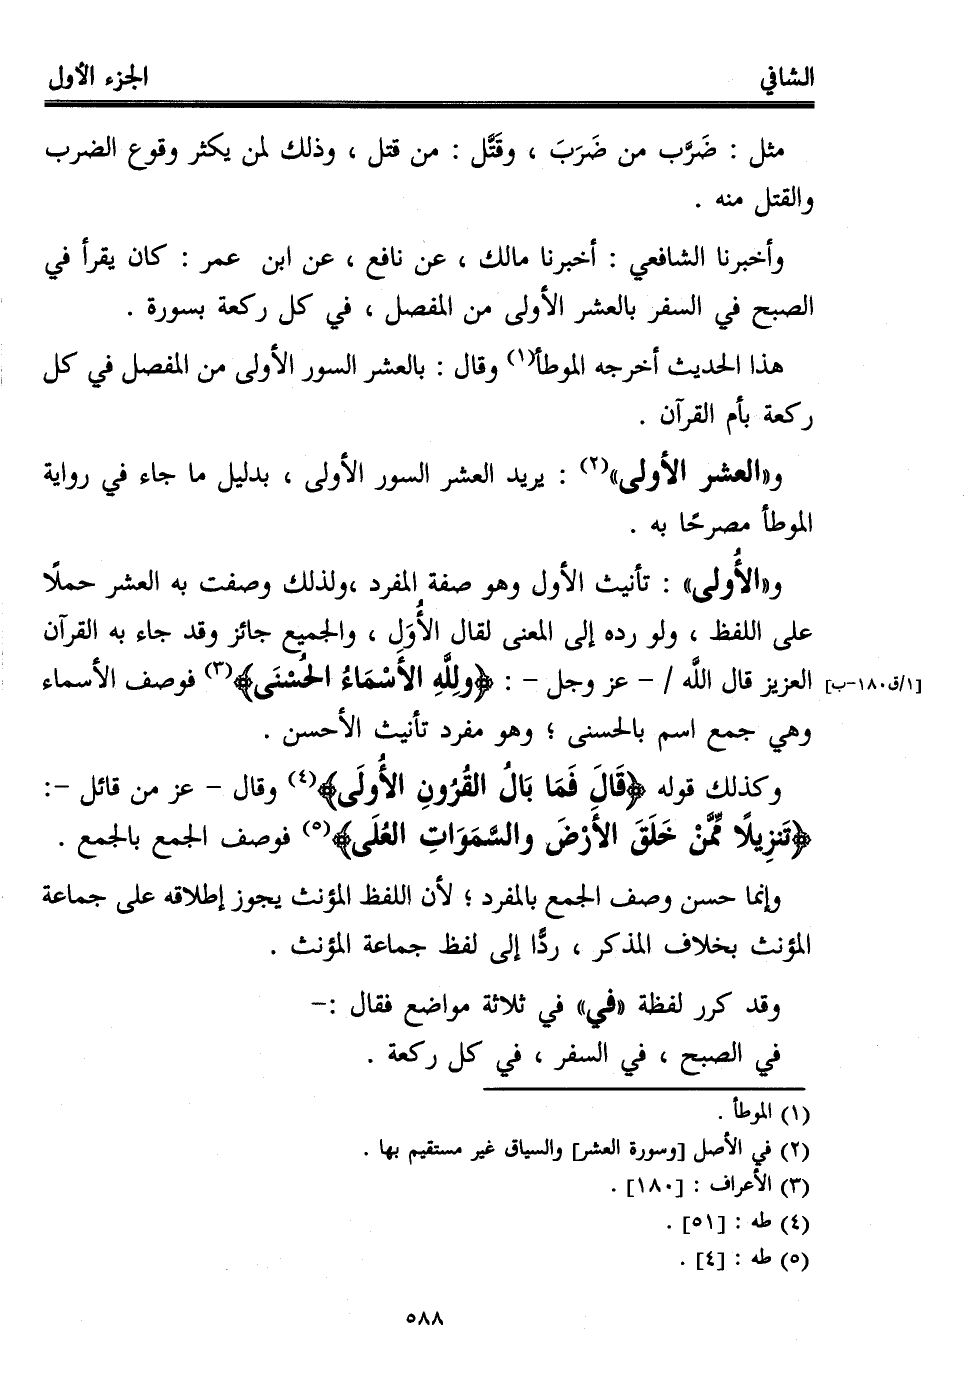 الشافي
الجزء الأول
مثل : ضَرَّب من ضَرَبَ ، وقَتَّل : من قتل ، وذلك لمن يكثر وقوع الضرب
والقتل منه .
وأخبرنا الشافعي : أخبرنا مالك ، عن نافع ، عن ابن عمر : كان يقرأ في
الصبح في السفر بالعشر الأولى من المفصل ، في كل ركعة بسورة .
هذا الحديث أخرجه الموطأ(١) وقال : بالعشر السور الأولى من المفصل في كل
ركعة بأم القرآن .
و«العشر الأولى»(٢) : يريد العشر السور الأولى ، بدليل ما جاء في رواية
الموطأ مصرحًا به .
و«الأُولى» : تأنيث الأول وهو صفة المفرد ،ولذلك وصفت به العشر حملًا
على اللفظ ، ولو رده إلى المعنى لقال الأُوَلِ ، والجميع جائز وقد جاء به القرآن
العزيز قال اللَّه / - عز وجل - : ﴿ولِلَّهِ الأَسْمَاءُ الحُسْنَى﴾(٣) فوصف الأسماء [١/ق١٨٠-ب]
وهي جمع اسم بالحسنى ؛ وهو مفرد تأنيث الأحسن .
وكذلك قوله ﴿قَالَ فَمَا بَالُ القُرُونِ الأُولَى﴾(٤) وقال - عز من قائل -:
﴿تَنزِيلًا مِّمَّنْ خَلَقَ الأَرْضَ والسَّمَوَاتِ العُلَى﴾(٥) فوصف الجمع بالجمع .
وإنما حسن وصف الجمع بالمفرد ؛ لأن اللفظ المؤنث يجوز إطلاقه على جماعة
المؤنث بخلاف المذكر ، ردًّا إلى لفظ جماعة المؤنث .
وقد كرر لفظة «في» في ثلاثة مواضع فقال :-
في الصبح ، في السفر ، في كل ركعة .
(١) الموطأ .
(٢) في الأصل [وسورة العشر] والسياق غير مستقيم بها .
(٣) الأعراف : [١٨٠] .
(٤) طه : [٥١] .
(٥) طه : [٤] .
٥٨٨